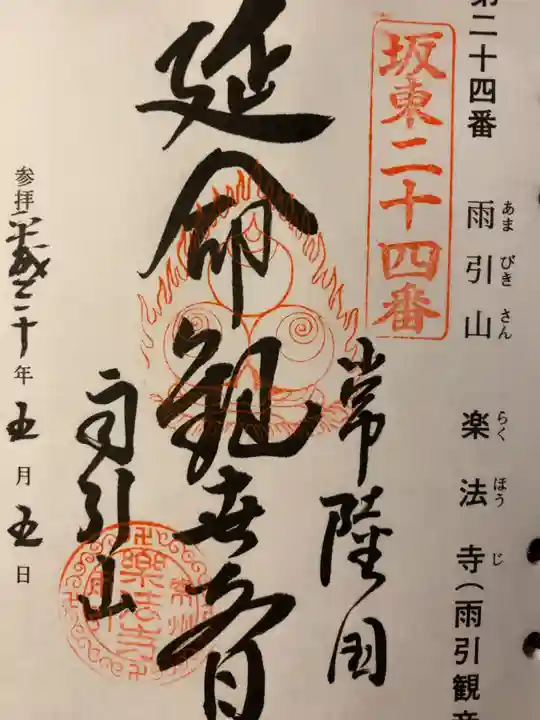 第二十四番 雨引山 楽法寺(雨引観音
あま びき さん らく ほう じ
坂東二十四番
常陸国
延命観世音
雨引山
参拝平成二十年五月五日